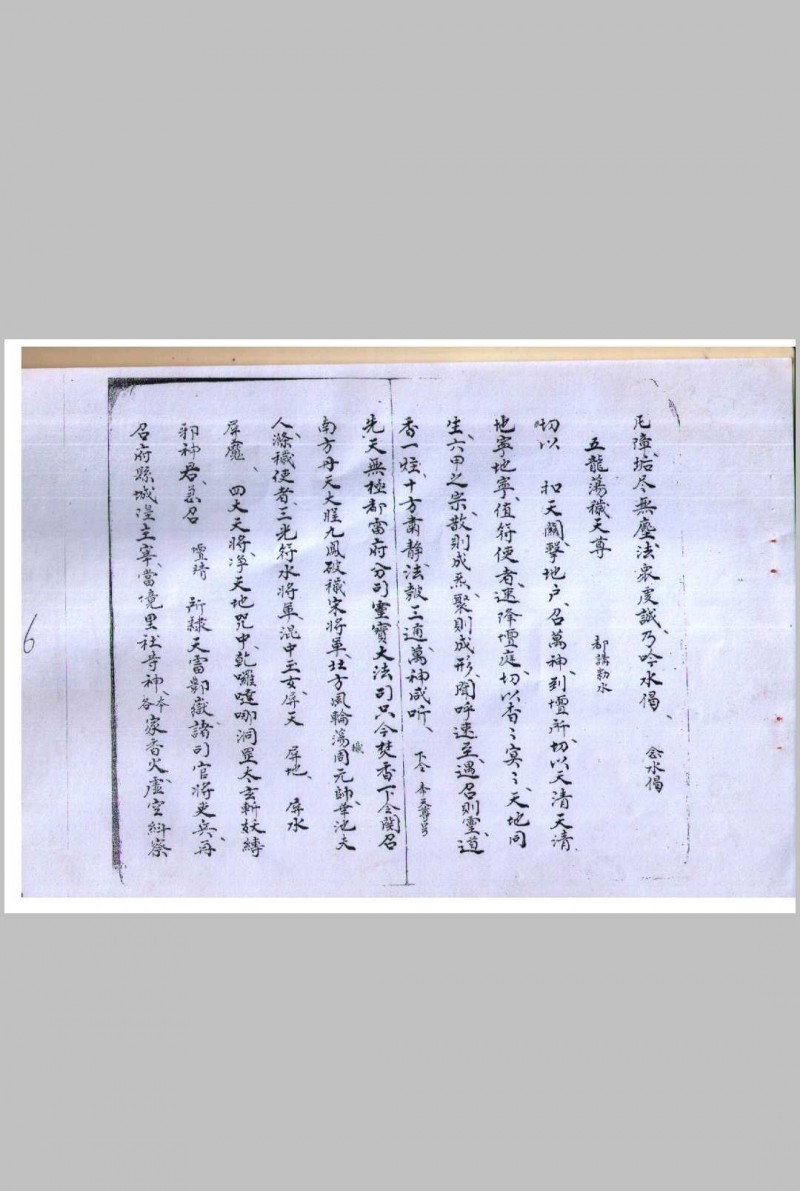 厄障垢尽無塵法衆虔誠乃吟水偈、 念水偈
五龍蕩穢天尊 都講勅水
切以 和天闕擊地户、召萬神到壇所切以天清天清、
地寧地寧、值符使者、速降壇庭、切以香〻冥〻、天地同
生、六甲之宗、散則成炁、聚則成形、聞呼速至、遇召則靈、道
香一炷、十方肅靜、法鼓三通、萬神咸听、 下令
先天無極都雷府分司靈寶大法司只今焚香下令関召
南方丹天大聖九鳳破穢宋將軍、北方風輪蕩穢周元帥、華池夫
人、滌穢使者、三光符水將軍、混申玉女、屏天 屏地、 屏水
屏 、 四大天將、淨天地咒中、乾囉噠哪洞罡太玄斬妖縛
邪神君、炁召 壇靖 所隸天雷酆嶽諸司官將吏兵、再
召府縣城湟主宰、當境里社等神各本家香火、虚空糾察
6